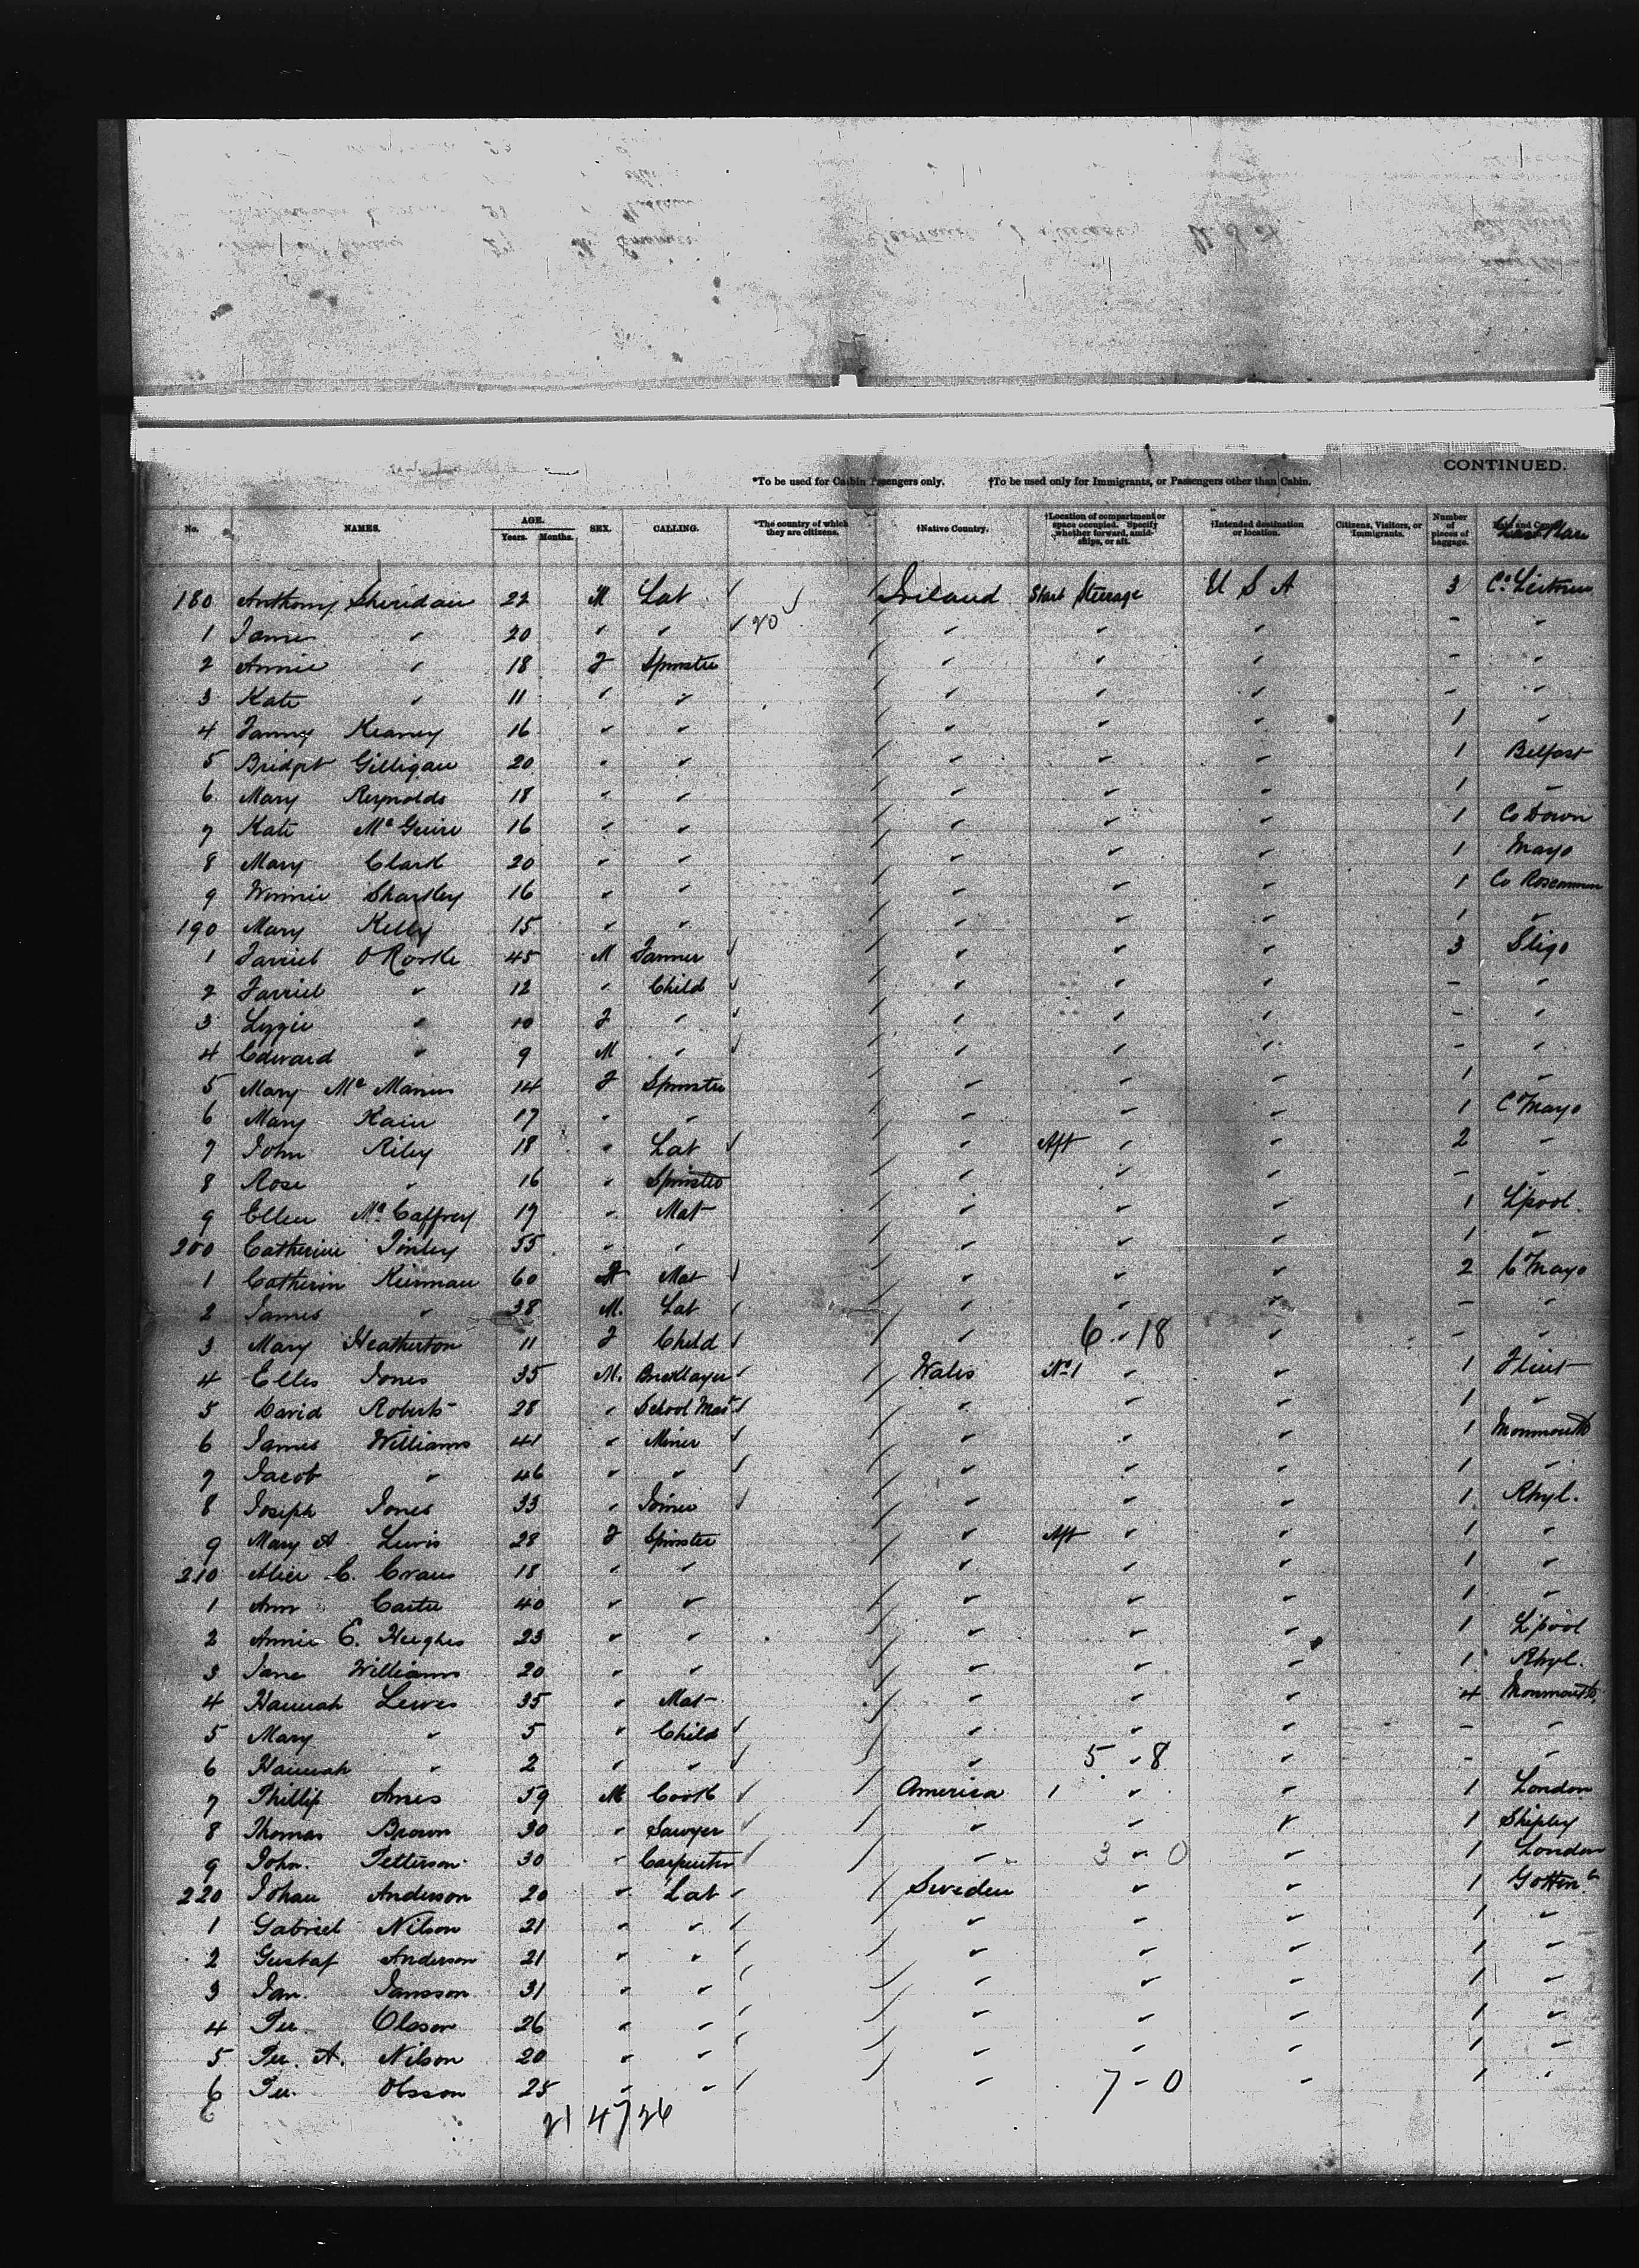 CONTINUED.
*To be used for Cabin Passengers only. †To be used only for Immigrants, or Passengers other than Cabin.
No. NAMES. AGE. Years. Months. SEX. CALLING. *The country of which they are citizens. †Native Country. †Location of compartment or space occupied. Specify whether forward, amidships, or aft. †Intended destination or location. Citizens, Visitors, or Immigrants. Number of pieces of baggage. Last Place
180 Anthony Sheridan 22 M Lab Ireland Start Steerage U S A 3 Co Leitrim
1 James " 20 " " 20 " " " - "
2 Annie " 18 F Spinster " " " - "
3 Kate " 11 " " " " " - "
4 Fanny Keaney 16 " " " " " 1 "
5 Bridget Gilligan 20 " " " " " 1 Belfast
6 Mary Reynolds 18 " " " " " 1 "
7 Kate McGuire 16 " " " " " 1 Co Down
8 Mary Clark 20 " " " " " 1 Mayo
9 Winnie Sharkey 16 " " " " " 1 Co Roscommon
190 Mary Kelly 15 " " " " " 1 "
1 Farriel O Rorke 45 M Farmer " " " 3 Sligo
2 Farriel " 12 " Child " " " - "
3 Lizzie " 10 F " " " " - "
4 Edward " 9 M " " " " - "
5 Mary Mc Manus 14 F Spinster " " " 1 "
6 Mary Kain 17 " " " " " 1 Co Mayo
7 John Riley 18 " Lab " Aft " " 2 "
8 Rose " 16 " Spinster " " " - "
9 Ellen Mc Caffrey 19 " Mat " " " 1 L'pool.
200 Catherine Finley 55 " " " " " 1 "
1 Catherin Kiernan 60 F Mat " " " 2 Co Mayo
2 James " 38 M. Lab " " " - "
3 Mary Heatherton 11 F Child " 6 - 18 " - "
4 Elles Jones 35 M. Bricklayer Wales No 1 " " 1 Flint
5 David Roberts 28 " School Mas " " " 1 "
6 James Williams 41 " Miner " " " 1 Monmouth
7 Jacob " 46 " " " " " 1 "
8 Joseph Jones 33 " Joiner " " " 1 Rhyl.
9 Mary A Lewis 28 F Spinster " Aft " " 1 "
210 Alice C. Evans 18 " " " " " 1 "
1 Ann Carter 40 " " " " " 1 "
2 Annie E. Hughes 23 " " " " " 1 L'pool
3 Jane Williams 20 " " " " " 1 Rhyl.
4 Hannah Lewis 35 " Mat " " " 4 Monmouth
5 Mary " 5 " Child " " " - "
6 Hannah " 2 " " " 5 - 8 " - "
7 Phillip Ames 59 M Cook America 1 " " 1 London
8 Thomas Brown 30 " Sawyer " " " 1 Shipley
9 John. Petterson 30 " Carpenter " 3 - 0 " 1 London
220 Johan Anderson 20 " Lab Sweden " " 1 Gottenb.
1 Gabriel Nilson 21 " " " " " 1 "
2 Gustaf Anderson 21 " " " " " 1 "
3 Jan. Jansson 31 " " " " " 1 "
4 Per Olsson 26 " " " " " 1 "
5 Per. A. Nilson 20 " " " " " 1 "
6 Per Olsson 25 " " " 7 - 0 " 1 "
21 47 26